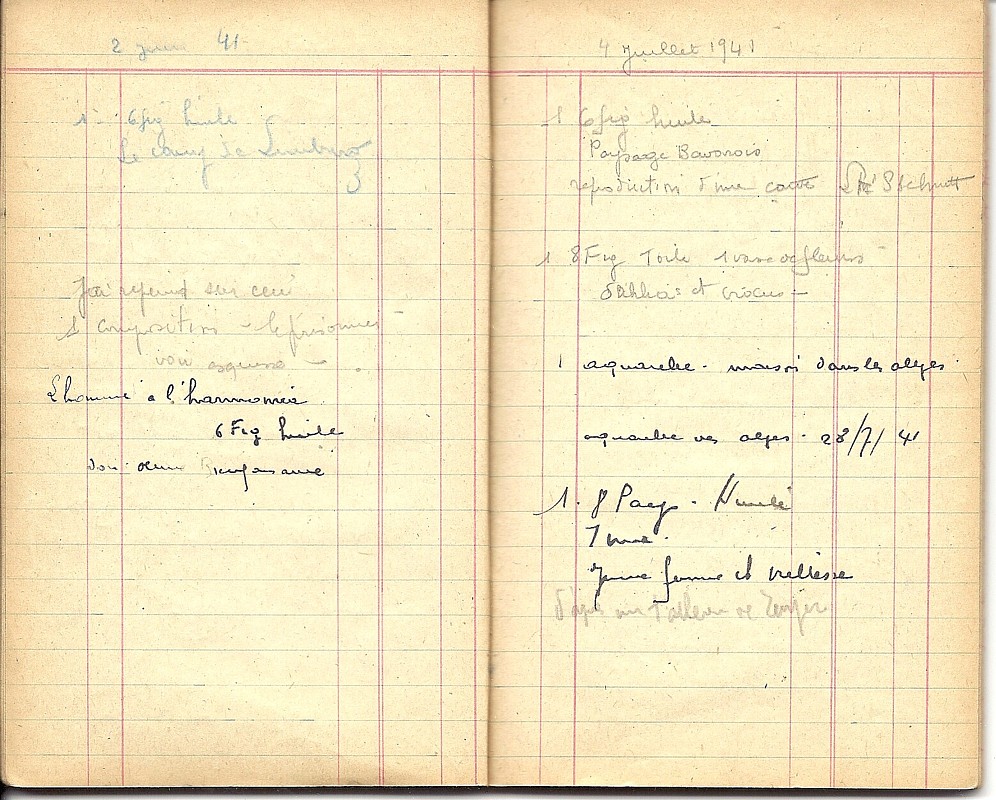 2 juin 41
1 6fig huile
Le camp de
3
J'ai repeint sur ceci
1 composition - le prisonnier
voir esquisse -
L'homme à l'harmonica
6 Fig huile
4 Juillet 1941
1 6fig huile
Paysage Bavarois
reproduction d'une carte
1 8 Fig Toile 1 vase de fleurs
Dahlias et crocus -
1 aquarelle - maison dans les alpes
aquarelle des alpes - 28/7/41
1 - 8 Pays - Huile
Jeune femme et vieillesse
D'après un tableau de